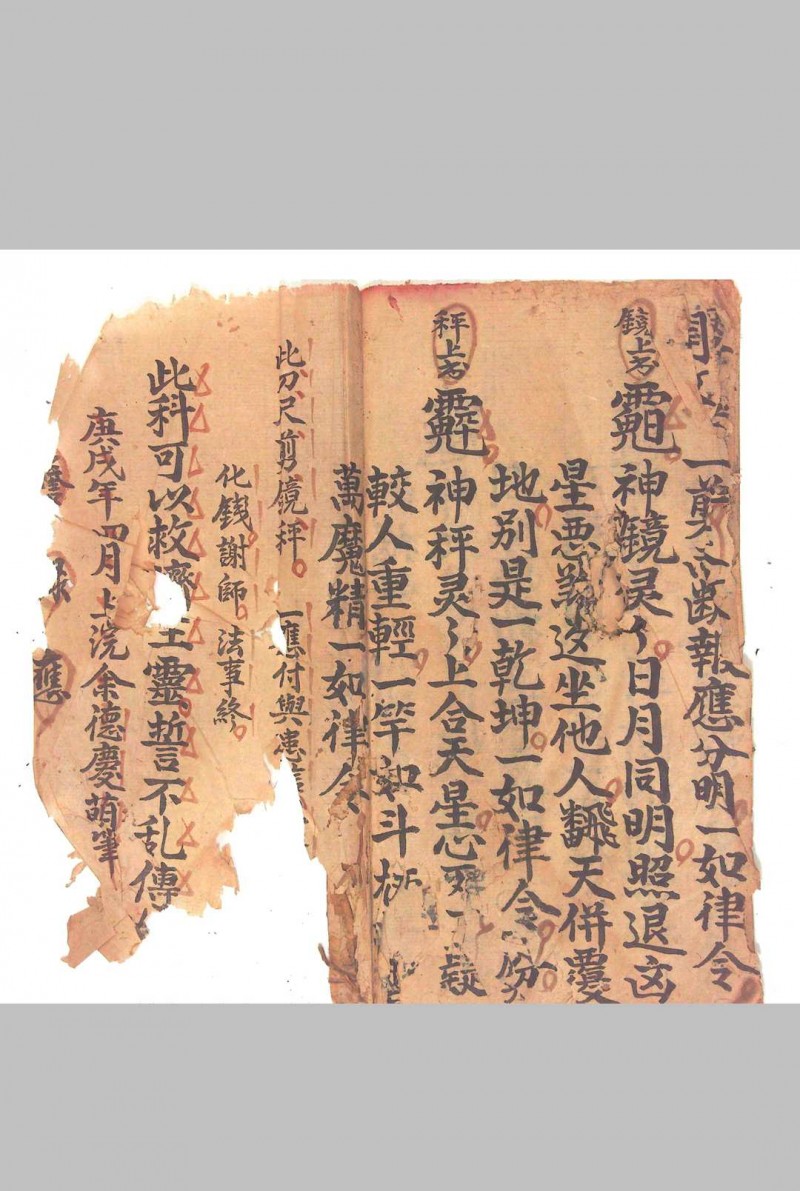 一剪不断報應分明一如律令
鏡上書
神鏡灵〻日月同明照退凶
星惡煞返坐他人飜天併覆
地別是一乾坤一如律令
秤上書
神秤灵〻上合天星心
較人重輕一竿和斗
萬魔精一如律令
此刀尺剪鏡秤。一應付與患
化錢謝師法事終
此科可以救濟生靈誓不乱傳
庚戌年四月上浣余德慶萌筆
應